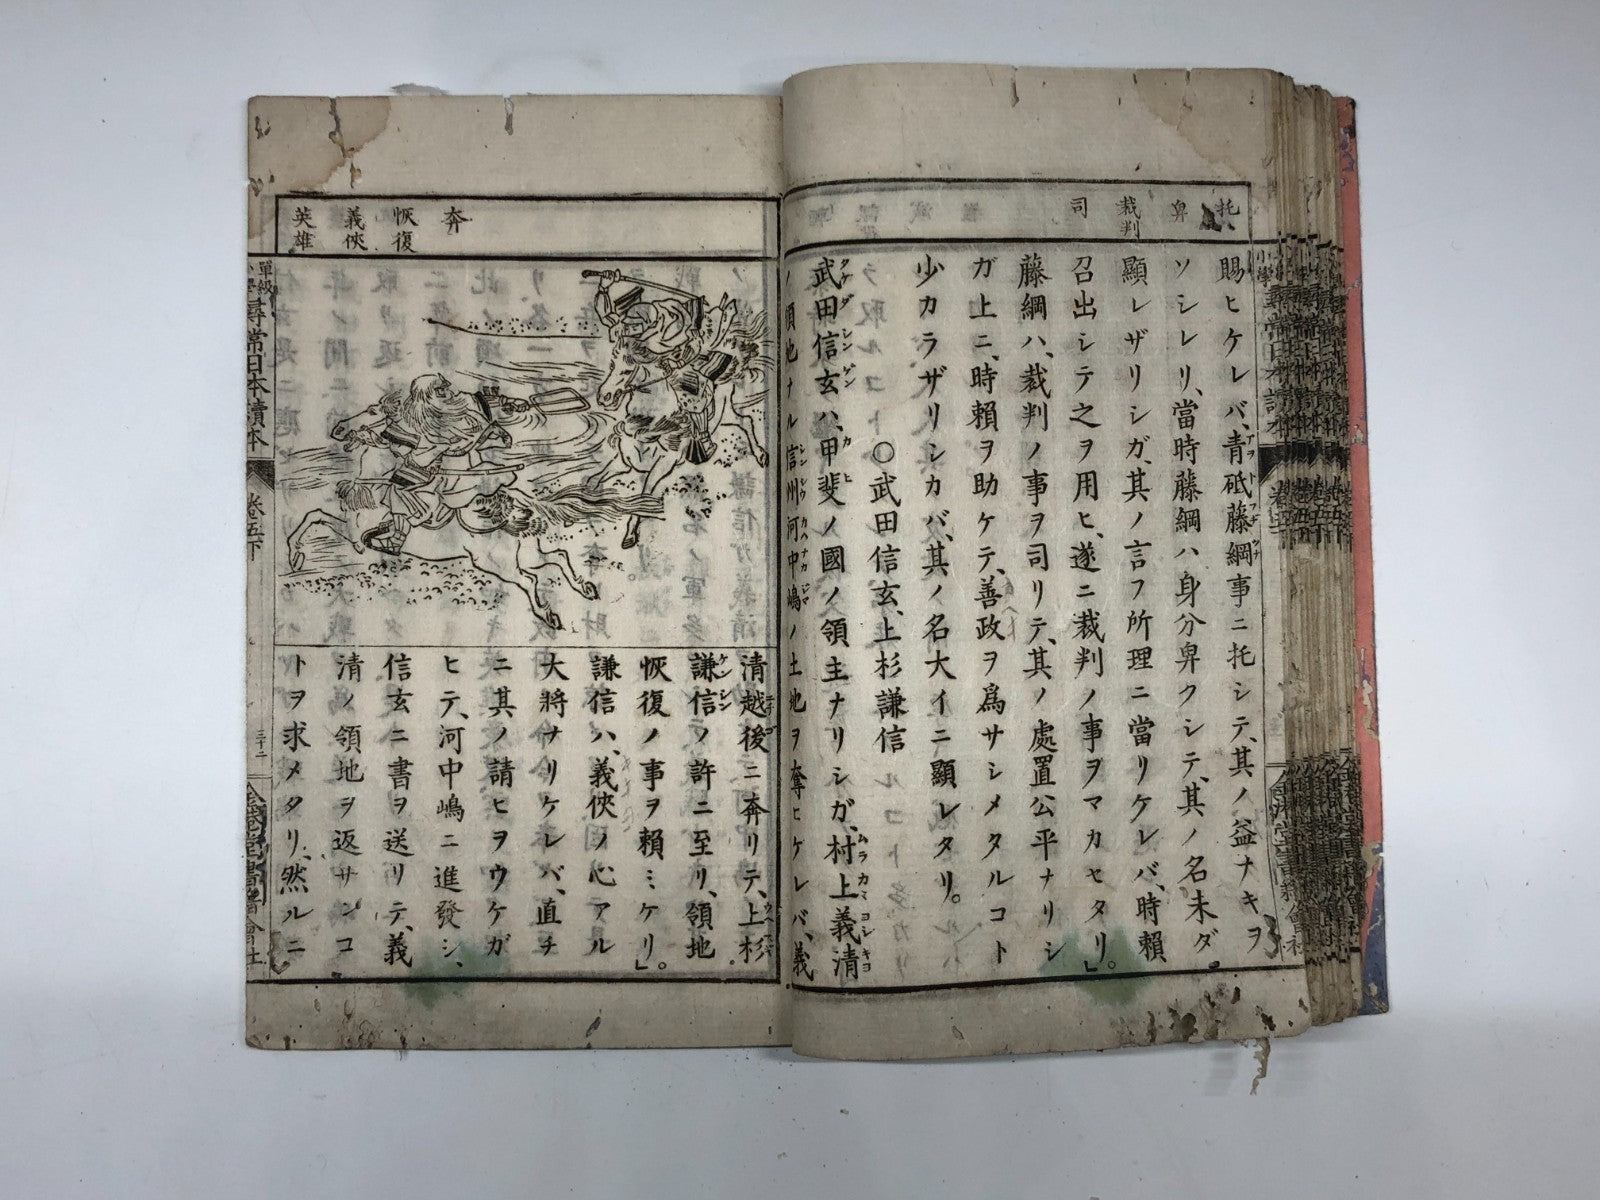 托
卑
裁判
司
賜ヒケレバ、青砥藤綱事ニ托シテ、其ノ益ナキヲ
ソシレリ、當時藤綱ハ身分卑クシテ、其ノ名未ダ
顯レザリシガ、其ノ言フ所理ニ當リケレバ、時賴
召出シテ之ヲ用ヒ、遂ニ裁判ノ事ヲマカセタリ。」
藤綱ハ、裁判ノ事ヲ司リテ、其ノ處置公平ナリシ
ガ上ニ、時賴ヲ助ケテ、善政ヲ爲サシメタルコト
少カラザリシカバ、其ノ名大イニ顯レタリ。
〇武田信玄、上杉謙信
武田信玄ハ、甲斐ノ國ノ領主ナリシガ、村上義清
ノ領地ナル信州河中嶋ノ土地ヲ奪ヒケレバ、義
奔
恢復
義俠
英雄
清越後ニ奔リテ、上杉
謙信ノ許ニ至リ、領地
恢復ノ事ヲ賴ミケリ」。
謙信ハ、義俠ノ心アル
大將ナリケレバ、直チ
ニ其ノ請ヒヲウケガ
ヒテ、河中嶋ニ進發シ、
信玄ニ書ヲ送リテ、義
清ノ領地ヲ返サンコ
トヲ求メタリ、然ルニ
單級小學尋常日本讀本
卷五下
三十二
金港堂書籍會社